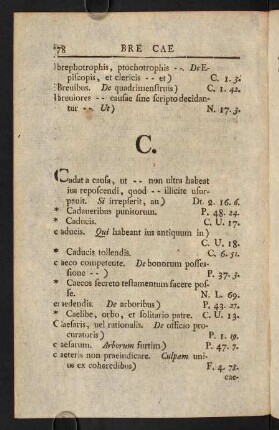 78 BRE CAE
brephotrophis, ptochotrophis -- . De E-
piscopis, et clericis -- et) C. 1. 3.
Breuibus. De quadrimenstruis) C. 1. 42.
breuiores -- causae sine scripto decidan-
tur -- Ut) N. 17. 3.
C.
Cadat a causa, ut -- non ultra habeat
ius reposcendi, quod -- illicite usur-
pauit. Si irrepserit, an) Dt. 2. 16. 6.
* Cadaueribus punitorum. P. 48. 24.
* Caducis. C. U. 17.
caducis. Qui habeant ius antiquum in)
C. U. 18.
* Caducis tollendis. C. 6. 51.
caeco competente. De bonorum posses-
sione -- ) P. 37. 3.
* Caecos secreto testamentum facere pos-
se. N. L. 69.
caedendis. De arboribus) P. 43. 27.
* Caelibe, orbo, et solitario patre. C. U. 13.
Caesaris, uel rationalis. De officio pro-
curatoris) P. 1. 19.
caesarum. Arborum furtim) P. 47. 7.
caeteris non praeiudicare. Culpam uni-
us ex coheredibus) F. 4. 78.
cae-